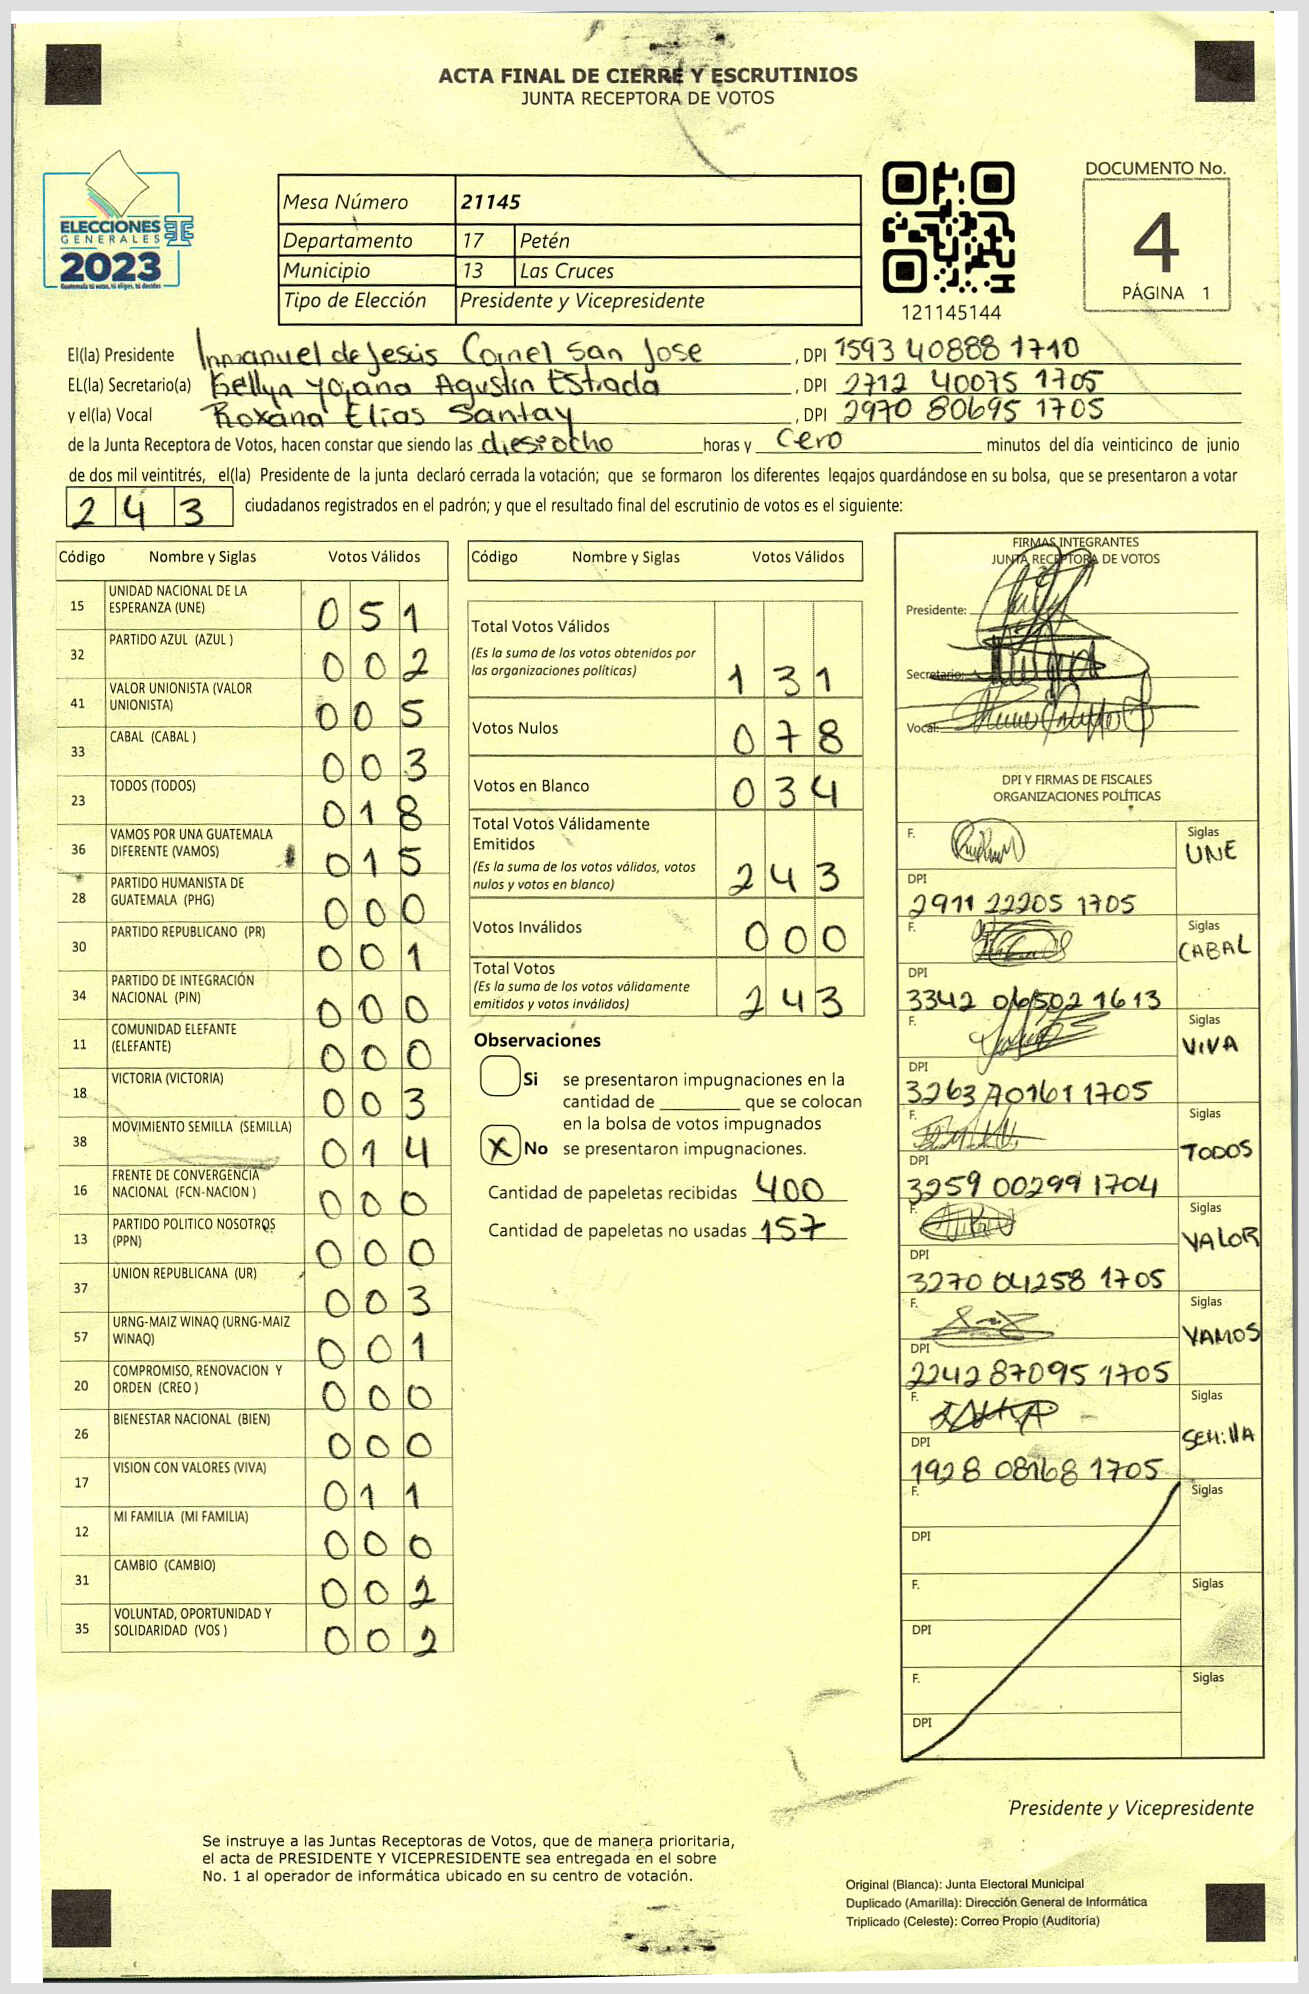 ACTA FINAL DE CIERRE Y ESCRUTINIOS
JUNTA RECEPTORA DE VOTOS
ELECCIONES
GENERALES
2023
Guatemala tú votas, tú eliges, tú decides
Mesa Número 21145
Departamento 17 Petén
Municipio 13 Las Cruces
Tipo de Elección Presidente y Vicepresidente
121145144
DOCUMENTO No.
4
PÁGINA 1
El(la) Presidente Inmanuel de Jesús Cornel San Jose, DPI 1593 40888 1710
EL(la) Secretario(a) Kellyn Yojana Agustin Estrada, DPI 2712 40075 1705
y el(la) Vocal Roxana Elias Santay, DPI 2970 80695 1705
de la Junta Receptora de Votos, hacen constar que siendo las diesiocho horas y cero minutos del día veinticinco de junio
de dos mil veintitrés, el(la) Presidente de la junta declaró cerrada la votación; que se formaron los diferentes legajos quardándose en su bolsa, que se presentaron a votar
243 ciudadanos registrados en el padrón; y que el resultado final del escrutinio de votos es el siguiente:
Código Nombre y Siglas Votos Válidos
15 UNIDAD NACIONAL DE LA ESPERANZA (UNE) 051
32 PARTIDO AZUL (AZUL ) 002
41 VALOR UNIONISTA (VALOR UNIONISTA) 005
33 CABAL (CABAL ) 003
23 TODOS (TODOS) 018
36 VAMOS POR UNA GUATEMALA DIFERENTE (VAMOS) 015
28 PARTIDO HUMANISTA DE GUATEMALA (PHG) 000
30 PARTIDO REPUBLICANO (PR) 001
34 PARTIDO DE INTEGRACIÓN NACIONAL (PIN) 000
11 COMUNIDAD ELEFANTE (ELEFANTE) 000
18 VICTORIA (VICTORIA) 003
38 MOVIMIENTO SEMILLA (SEMILLA) 014
16 FRENTE DE CONVERGENCIA NACIONAL (FCN-NACION ) 000
13 PARTIDO POLITICO NOSOTROS (PPN) 000
37 UNION REPUBLICANA (UR) 003
57 URNG-MAIZ WINAQ (URNG-MAIZ WINAQ) 001
20 COMPROMISO, RENOVACION Y ORDEN (CREO ) 000
26 BIENESTAR NACIONAL (BIEN) 000
17 VISION CON VALORES (VIVA) 011
12 MI FAMILIA (MI FAMILIA) 000
31 CAMBIO (CAMBIO) 002
35 VOLUNTAD, OPORTUNIDAD Y SOLIDARIDAD (VOS ) 002
Código Nombre y Siglas Votos Válidos
Total Votos Válidos
(Es la suma de los votos obtenidos por
las organizaciones políticas) 131
Votos Nulos 078
Votos en Blanco 034
Total Votos Válidamente
Emitidos
(Es la suma de los votos válidos, votos
nulos y votos en blanco) 243
Votos Inválidos 000
Total Votos
(Es la suma de los votos válidamente
emitidos y votos inválidos) 243
Observaciones
Si se presentaron impugnaciones en la
cantidad de ________ que se colocan
en la bolsa de votos impugnados
X No se presentaron impugnaciones.
Cantidad de papeletas recibidas 400
Cantidad de papeletas no usadas 157
FIRMAS INTEGRANTES
JUNTA RECEPTORA DE VOTOS
Presidente:
Secretario:
Vocal:
DPI Y FIRMAS DE FISCALES
ORGANIZACIONES POLÍTICAS
F. Siglas UNE
DPI 2911 22205 1705
F. Siglas CABAL
DPI 3342 06502 1613
F. Siglas VIVA
DPI 3263 70161 1705
F. Siglas TODOS
DPI 3259 00299 1704
F. Siglas VALOR
DPI 3270 04258 1705
F. Siglas VAMOS
DPI 2242 87095 1705
F. Siglas SEMillA
DPI 1928 08168 1705
F. Siglas
DPI
F. Siglas
DPI
F. Siglas
DPI
Presidente y Vicepresidente
Se instruye a las Juntas Receptoras de Votos, que de manera prioritaria,
el acta de PRESIDENTE Y VICEPRESIDENTE sea entregada en el sobre
No. 1 al operador de informática ubicado en su centro de votación.
Original (Blanca): Junta Electoral Municipal
Duplicado (Amarilla): Dirección General de Informática
Triplicado (Celeste): Correo Propio (Auditoría)